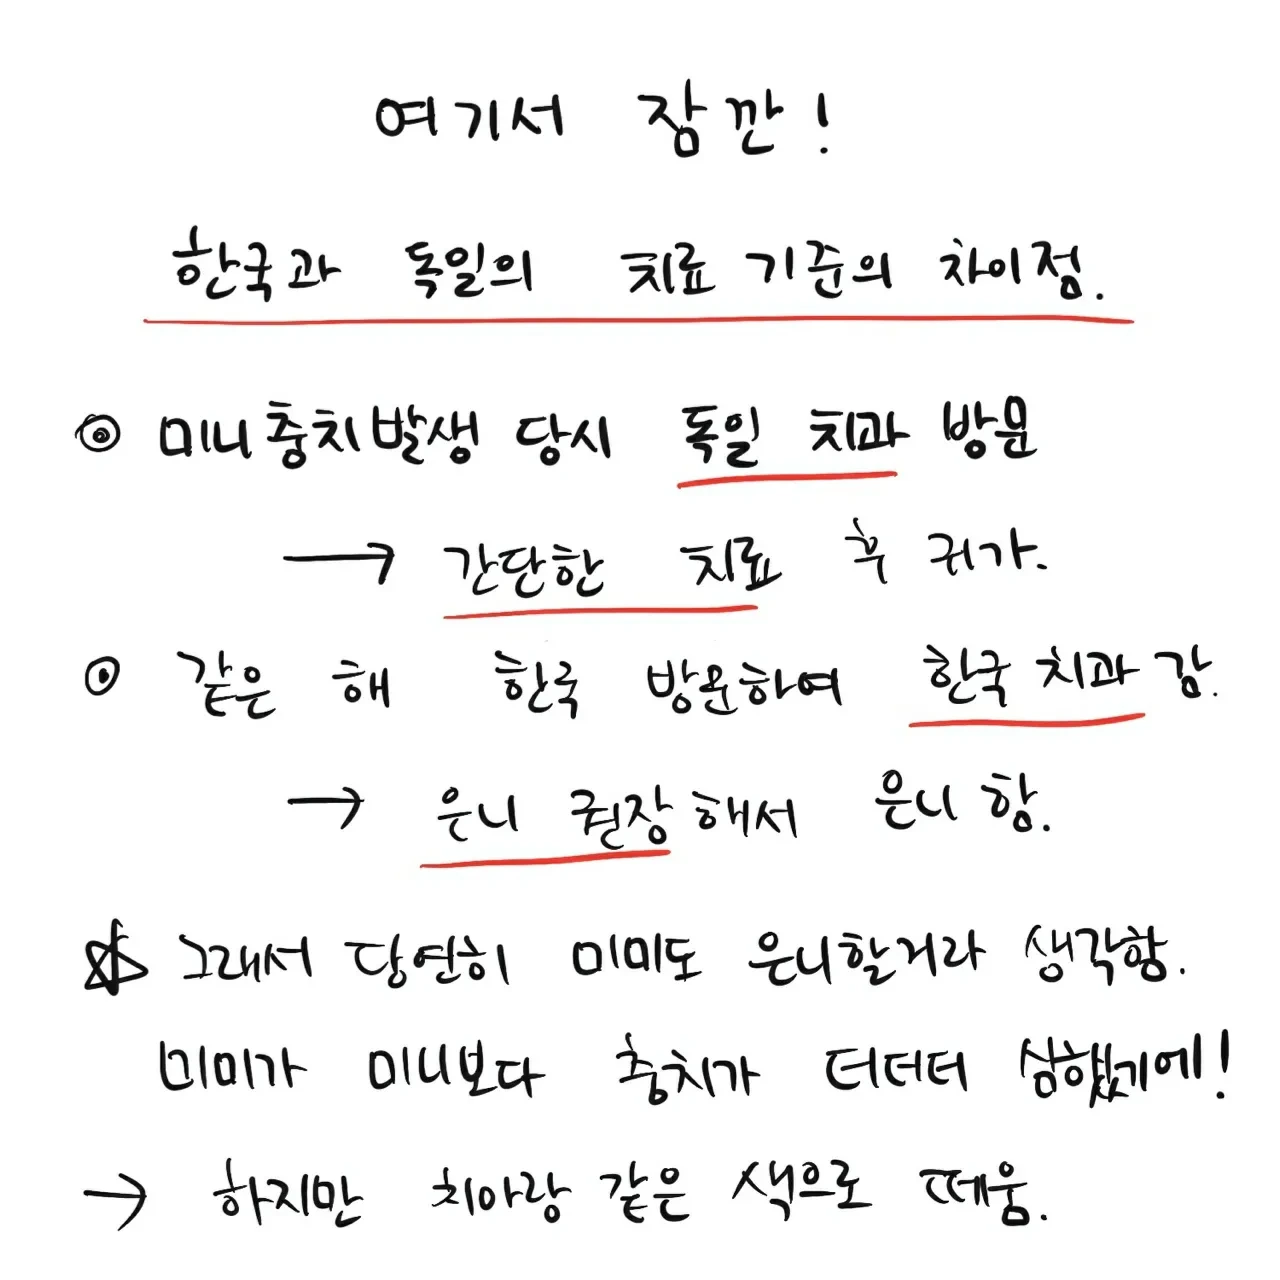 여기서 잠깐!
한국과 독일의 치료 기준의 차이점.
미니 충치발생 당시 독일 치과 방문
→ 간단한 치료 후 귀가.
같은 해 한국 방문하여 한국 치과 감.
→ 은니 권장해서 은니 함.
☆ 그래서 당연히 미미도 은니할거라 생각함.
미미가 미니보다 충치가 더더더 심했기에!
→ 하지만 치아랑 같은 색으로 떼움.